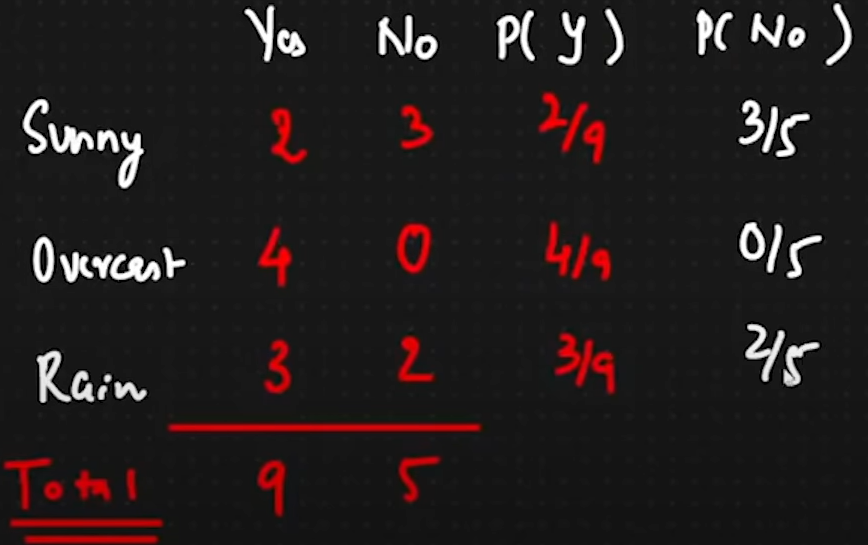 Yes No P( Y ) P( No )
Sunny 2 3 2/9 3/5
Overcast 4 0 4/9 0/5
Rain 3 2 3/9 2/5
Total 9 5